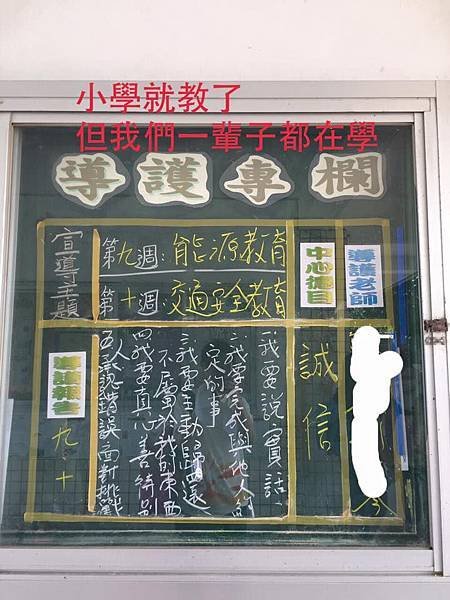 小學就教了
但我們一輩子都在學
導護專欄
導護老師
中心德目
誠信
宣導主題
第九週:能源教育
第十週:交通安全教育
一、我要說實話
二、我要完成與他人約
定的事
三、我要主動歸還
不屬於我的東西
四、我要真心善待別
人
五、承認錯誤面對挑戰
九、十